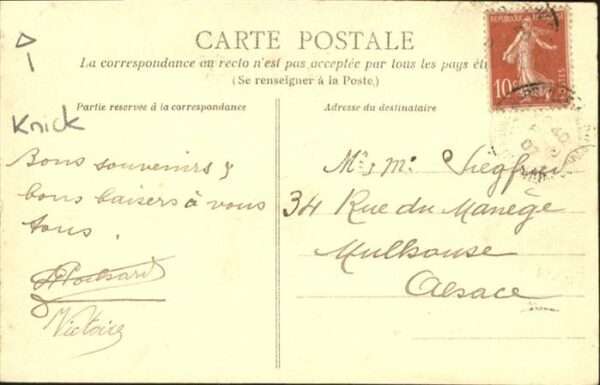 CARTE POSTALE
La correspondance au recto n'est pas acceptée par tous les pays
(Se renseigner à la Poste.)
Partie reservée à la correspondance
Adresse du destinataire
REPUBLIQUE
10c
POSTES
Knick
Bons souvenirs &
bons baisers à vous
tous.
Victoire
Mr, Mr Siegfried
34 Rue du Manège
Mulhouse
Alsace